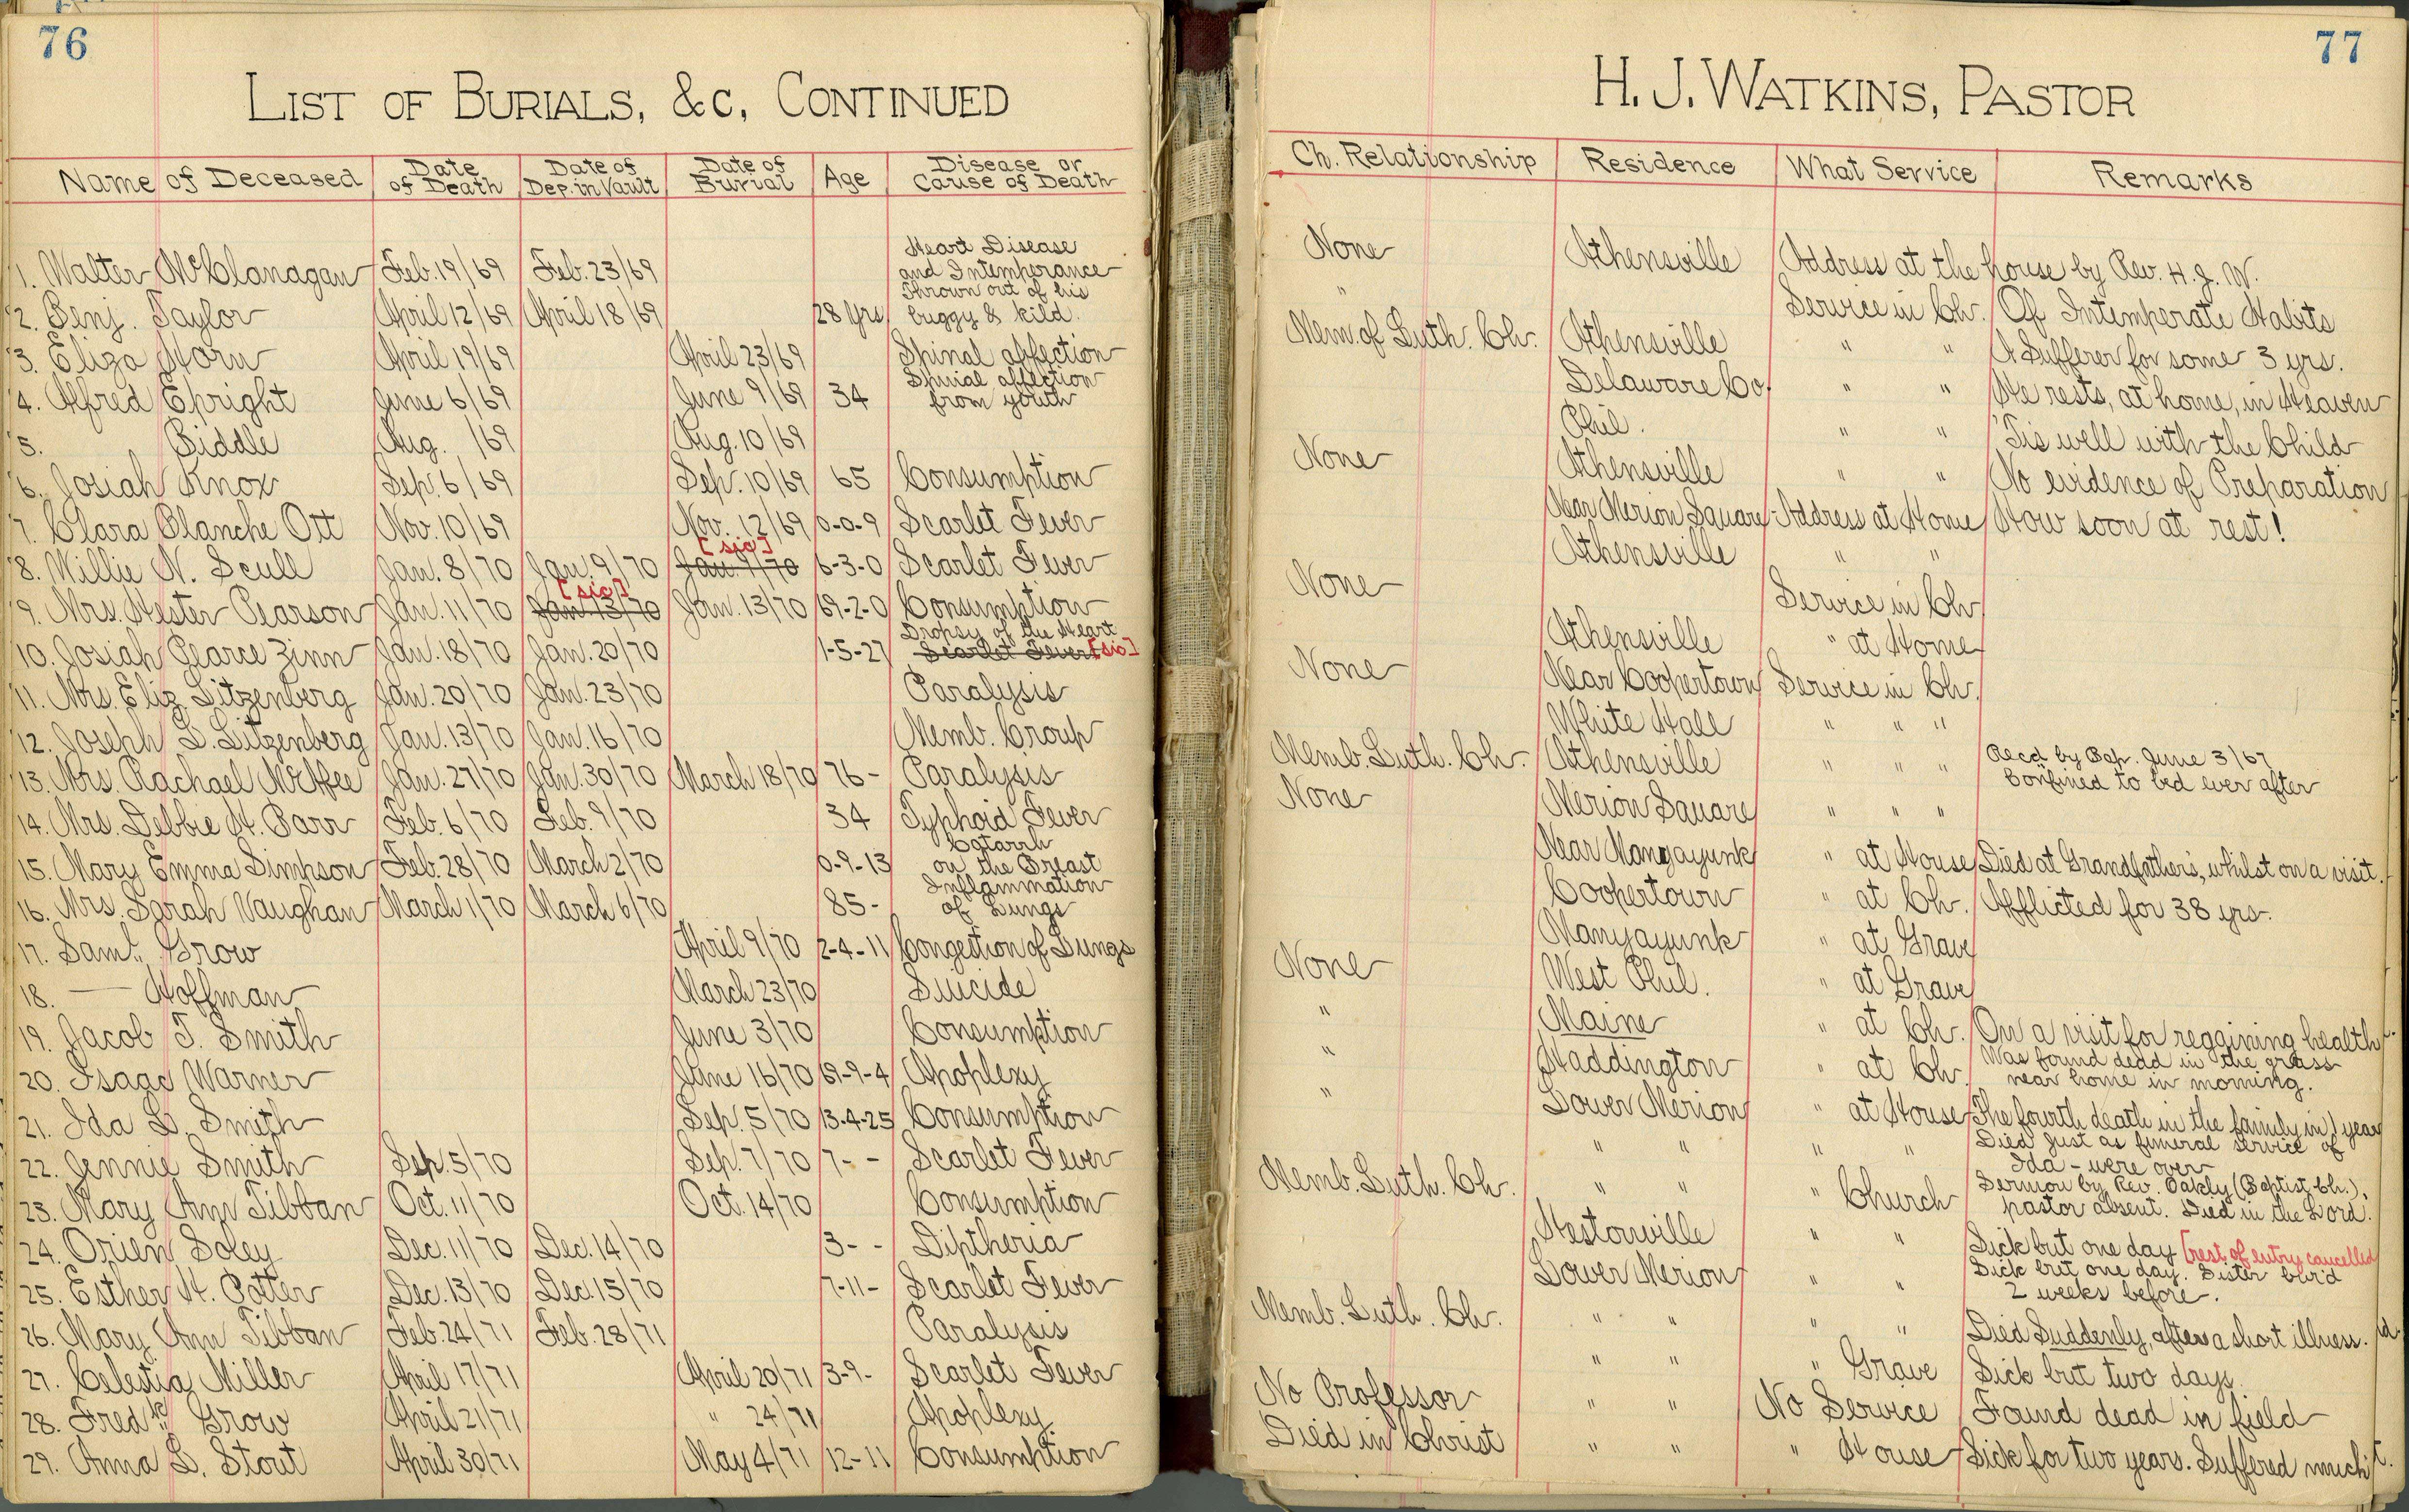 76
LIST OF BURIALS, &c, CONTINUED
Name of Deceased | Date of Death | Date of Dep. in Vault | Date of Burial | Age | Disease or Cause of Death
1. Walter McClanagan Feb. 19/69 Feb. 23/69 Heart Disease and Intemperance
2. Benj. Taylor April 12/69 April 18/69 28 Yrs Thrown out of his buggy & kild.
3. Eliza Horn April 19/69 April 23/69 Spinal affection
4. Alfred Epright June 6/69 June 9/69 34 Spinal affection from youth
5. Biddle Aug. /69 Aug. 10/69
6. Josiah Knox Sep. 6/69 Sep. 10/69 65 Consumption
7. Clara Blanche Ott Nov. 10/69 Nov. 12/69 0-0-9 Scarlet Fever
8. Willie N. Scull Jan. 8/70 Jan. 9/70 [sic] Jan. 9/70 6-3-0 Scarlet Fever
9. Mrs. Hester Pearson Jan. 11/70 [sic] Jan. 13/70 Jan. 13/70 69-2-0 Consumption
10. Josiah Pearce Zinn Jan. 18/70 Jan. 20/70 1-5-27 Dropsy of the Heart Scarlet Fever [sic]
11. Mrs. Eliz. Litzenberg Jan. 20/70 Jan. 23/70 Paralysis
12. Joseph L. Litzenberg Jan. 13/70 Jan. 16/70 Memb. Croup
13. Mrs. Rachael McAffee Jan. 27/70 Jan. 30/70 March 18/70 76- Paralysis
14. Mrs. Debbie H. Parr Feb. 6/70 Feb. 9/70 34 Typhoid Fever
15. Mary Emma Simpson Feb. 28/70 March 2/70 0-9-13 Catarrh on the Breast
16. Mrs. Sarah Vaughan March 1/70 March 6/70 85- Inflammation of Lungs
17. Saml. Grow April 9/70 2-4-11 Congestion of Lungs
18. — Hoffman March 23/70 Suicide
19. Jacob T. Smith June 3/70 Consumption
20. Isaac Warner June 16/70 69-9-4 Apoplexy
21. Ida L. Smith Sep. 5/70 13-4-25 Consumption
22. Jennie Smith Sep. 5/70 Sep. 7/70 7- - Scarlet Fever
23. Mary Ann Tibban Oct. 11/70 Oct. 14/70 Consumption
24. Orien Soley Dec. 11/70 Dec. 14/70 3- - Diptheria
25. Esther H. Potter Dec. 13/70 Dec. 15/70 7-11- Scarlet Fever
26. Mary Ann Tibban Feb. 24/71 Feb. 28/71 Paralysis
27. Celestia Miller April 17/71 April 20/71 3-9- Scarlet Fever
28. Fredk Grow April 21/71 " 24/71 Apoplexy
29. Anna L. Stout April 30/71 May 4/71 12-11 Consumption
77
H. J. WATKINS, PASTOR
Ch. Relationship | Residence | What Service | Remarks
None Athensville Address at the house by Rev. H. J. W.
" Service in Ch. Of Intemperate Habits
Mem. of Luth. Ch. Athensville " " A Sufferer for some 3 yrs.
Delaware Co. " " He rests, at home, in Heaven
Phil. " " 'Tis well with the Child
None Athensville " " No evidence of Preparation
Near Merion Square Address at Home How soon at rest!
Athensville " "
None Service in Ch.
Athensville " at Home
None Near Coopertown Service in Ch.
White Hall " " "
Memb. Luth. Ch. Athensville " " " Recd by Bap. June 3/67 Confined to bed ever after
None Merion Square " " "
Near Manyayunk " at House Died at Grandfather's, whilst on a visit.
Coopertown " at Ch. Afflicted for 38 yrs.
Manyayunk " at Grave
None West Phil. " at Grave
" Maine " at Ch. On a visit for regaining health
" Haddington " at Ch. Was found dead in the grass near home in morning.
" Lower Merion " at House The fourth death in the family in 1 year
" " " " Died just as funeral service of Ida - were over
Memb. Luth. Ch. " " " Church Sermon by Rev. Oakly (Baptist Ch.), pastor absent. Died in the Lord.
Hestonville " " Sick but one day [rest of entry cancelled
Lower Merion " " Sick but one day. Sister bur'd 2 weeks before.
Memb. Luth. Ch. " " " " Died Suddenly, after a short illness.
" " " Grave Sick but two days.
No Professor " " No Service Found dead in field
Died in Christ " " " House Sick for two years. Suffered much